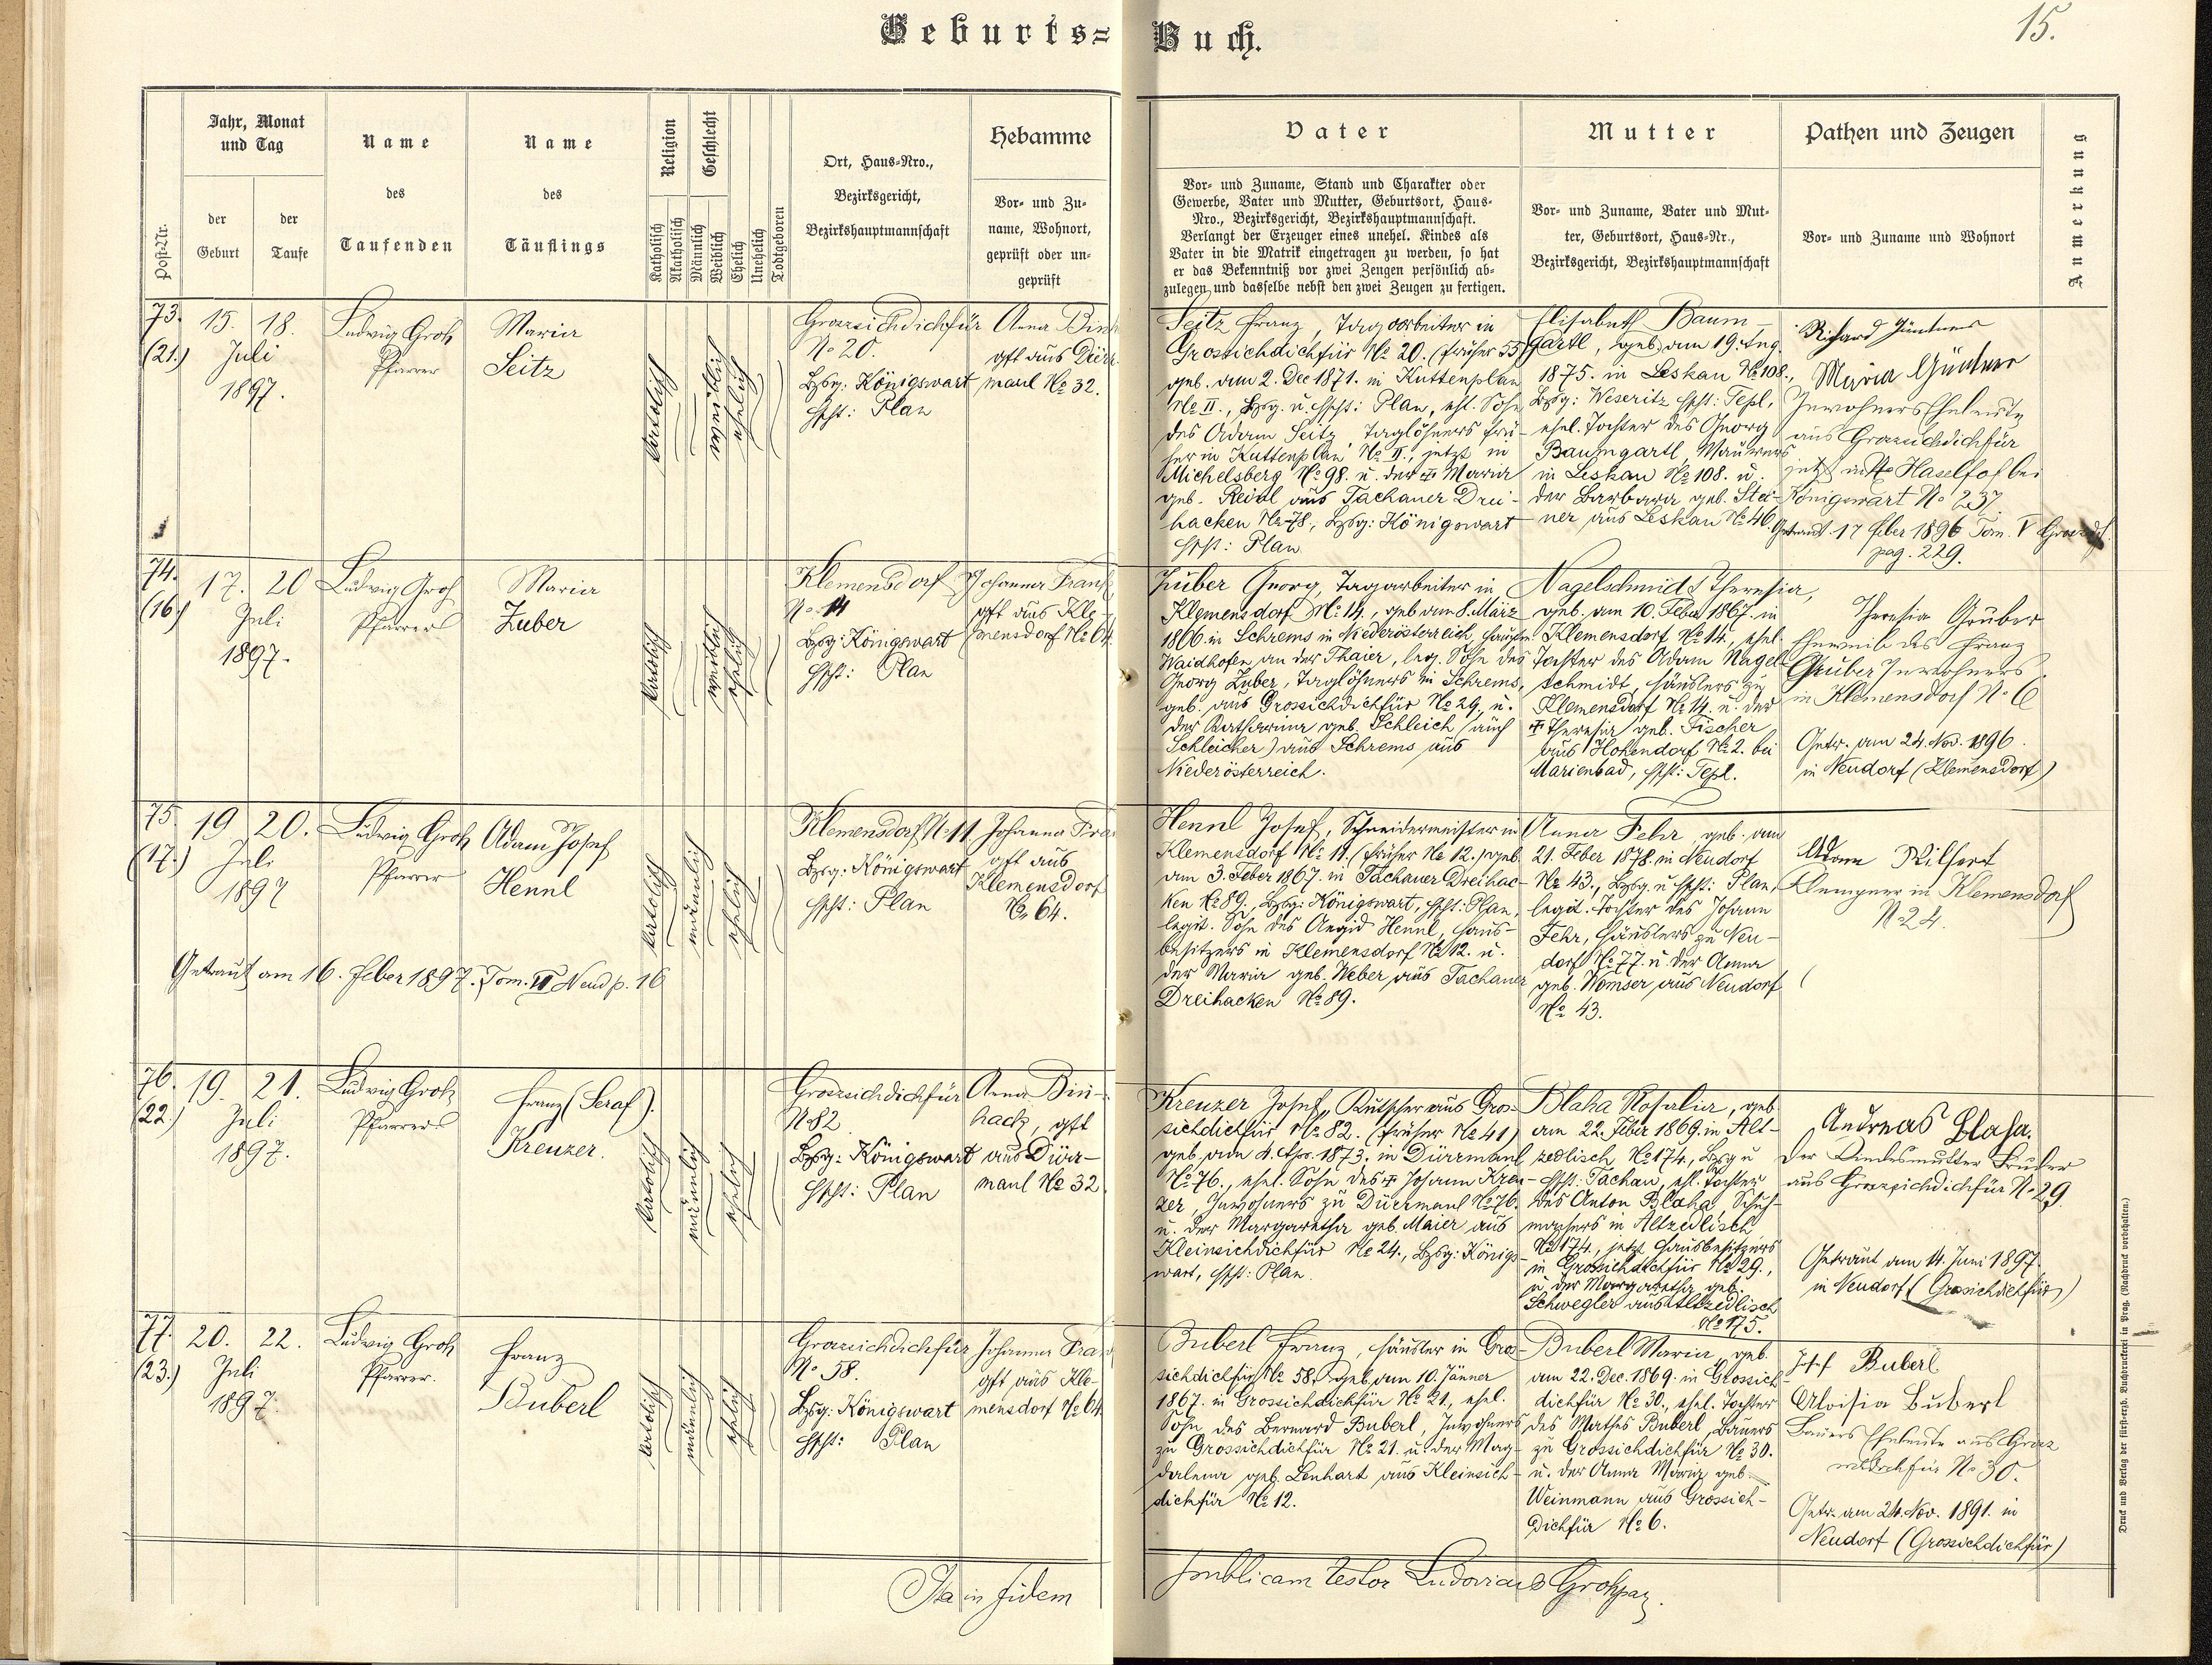 Geburts=Buch.
15.
Post-Nr.
Jahr, Monat
und Tag
der
Geburt
der
Taufe
Name
des
Taufenden
Name
des
Täuflings
Religion
Katholisch
Akatholisch
Geschlecht
Männlich
Weiblich
Ehelich
Unehelich
Todtgeboren
Ort, Haus-Nro.,
Bezirksgericht,
Bezirkshauptmannschaft
Hebamme
Vor- und Zu-
name, Wohnort,
geprüft oder un-
geprüft
Vater
Vor- und Zuname, Stand und Charakter oder
Gewerbe, Vater und Mutter, Geburtsort, Haus-
Nro., Bezirksgericht, Bezirkshauptmannschaft.
Verlangt der Erzeuger eines unehel. Kindes als
Vater in die Matrik eingetragen zu werden, so hat
er das Bekenntniß vor zwei Zeugen persönlich ab-
zulegen und dasselbe nebst den zwei Zeugen zu fertigen.
Mutter
Vor- und Zuname, Vater und Mut-
ter, Geburtsort, Haus-Nr.,
Bezirksgericht, Bezirkshauptmannschaft
Pathen und Zeugen
Vor- und Zuname und Wohnort
Anmerkung
73.
(21.)
15. 18.
Juli
1897.
Ludwig Groh
Pfarrer
Maria
Seitz
katholisch
weiblich
ehelich
Grossichdichfür
No 20.
Bzsg: Königswart
Hpft: Plan
Anna Bin
gft aus Dürr-
maul No 32.
Seitz Franz, Tagarbeiter in
Grossichdichfür No 20. (früher 55)
geb. am 2. Dec 1871. in Kuttenplan
No II., Bzsg. u. Hpft: Plan, ehl. Sohn
des Adam Seitz, Taglöhners frü-
her in Kuttenplan No II., jetzt in
Michelsberg No 98. u. der † Maria
geb. Reidl aus Tachauer Drei-
hacken No 78, Bzsg: Königswart
Hpft: Plan.
Elisabeth Baum-
gartl, geb. am 19. Aug.
1875. in Leskau No 108.,
Bzsg: Weseritz Hpft: Tepl,
ehel. Tochter des Georg
Baumgartl, Maurers
in Leskau No 108. u.
der Barbara geb. Stei-
ner aus Leskau No 46.
Richard Güntner
Maria Güntner
Inwohners Eheleute
aus Grossichdichfür
jetzt in Haselhof bei
Königswart No 237.
Getraut 17 feber 1896 Tom. V
pag. 229.
74.
(16.)
17. 20
Juli
1897.
Ludwig Groh
Pfarrer
Maria
Zuber
katholisch
weiblich
ehelich
Klemensdorf
No 14
Bzsg: Königswart
Hpft: Plan
Johanna Frank
gft aus Kle-
mensdorf No 64.
Zuber Georg, Tagarbeiter in
Klemensdorf No 14., geb am 8. März
1866. in Schrems in Niederösterreich,
Waidhofen an der Thaier, leg. Sohn des
Georg Zuber, Taglöhners in Schrems,
geb. aus Grossichdichfür No 29., u.
der Katharina geb. Schleich (auch
Schleicher) aus Schrems aus
Niederösterreich.
Nagelschmidt Theresia,
geb. am 10. Feber 1867. in
Klemensdorf No 14., ehel.
Tochter des Adam Nagel-
schmidt, Häuslers zu
Klemensdorf No 14. u. der
† Theresia geb. Fischer
aus Hohendorf No 2. bei
Marienbad, Hpft: Tepl.
Theresia Gruber
Eheweib des Franz
Gruber Inwohners
in Klemensdorf No 6
Getr. am 24. Nov. 1896.
in Neudorf (Klemensdorf)
75.
(17.)
19 20.
Juli
1897
Ludwig Groh
Pfarrer
Adam Josef
Hennl
katholisch
männlich
ehelich
Klemensdorf No 11
Bzsg: Königswart
Hpft: Plan
Johanna Fra
gft aus
Klemensdorf
No 64.
Getraut am 16. feber 1897. Tom. VI Neud p. 16
Hennl Josef, Schneidermeister in
Klemensdorf No 11. (früher No 12.) geb.
am 3. Feber 1867. in Tachauer Dreihac-
ken No 89., Bzsg: Königswart, Hpft: Plan,
legit. Sohn des Aegid Hennl, Haus-
besitzers in Klemensdorf No 12. u.
der Maria geb. Weber aus Tachauer
Dreihacken No 89.
Anna Fehr, geb. am
21. Feber 1878. in Neudorf
No 43., Bzsg. u Hpft: Plan,
legit. Tochter des Johann
Fehr, Häuslers zu Neu-
dorf No 77. u. der Anna
geb. Womser aus Neudorf
No 43.
Adam
Klempner in Klemensdorf
No 24.
76.
(22.)
19. 21.
Juli
1897.
Ludwig Groh
Pfarrer
Franz (Seraf).
Kreuzer.
katholisch
männlich
ehelich
Grossichdichfür
No 82
Bzsg: Königswart
Hpft: Plan
Anna Bin-
hack, gft
aus Dürr-
maul No 32
Kreuzer Josef, Kutscher aus Gros-
sichdichfür No 82. (früher No 41)
geb. am 4. Apr. 1873. in Dürrmaul
No 76., ehel. Sohn des † Johann Kreu-
zer, Inwohners zu Dürrmaul No 76.
u. der Margaretha geb. Maier aus
Kleinsichdichfür No 24., Bzsg: Königs-
wart, Hpft: Plan.
Blaha Rosalia, geb
am 22. Feber 1869. in Alt-
zedlisch No 174., Bzsg u
Hpft: Tachau, ehl. Tochter
des Anton Blaha, Schuh-
machers in Altzedlisch
No 174., jetzt Hausbesitzers
in Grossichdichfür No 29.,
u. der Margaretha geb.
Schwegler aus Altzedlisch
No 175.
Andreas Blaha.
der Kindesmutter Bruder
aus Grossichdichfür No 29.
Getraut am 14. Juni 1897.
in Neudorf (Grossichdichfür)
77.
(23.)
20. 22.
Juli
1897.
Ludwig Groh
Pfarrer.
Franz
Buberl
katholisch
männlich
ehelich
Grossichdichfür
No 58.
Bzsg: Königswart
Hpft: Plan
Johanna Fra
gft aus Kle-
mensdorf No 64
Buberl Franz, Häusler in Gros-
sichdichfür No 58., geb. am 10. Jänner
1867. in Grossichdichfür No 21., ehel.
Sohn des Bernard Buberl, Inwohners
zu Grossichdichfür No 21. u. der Mag-
dalena geb. Lenhart aus Kleinsich-
dichfür No 12.
Buberl Maria, geb.
am 22. Dec. 1869. in Grossich-
dichfür No 30., ehel. Tochter
des Mathes Buberl, Bauers
zu Grossichdichfür No 30.
u. der Anna Maria geb.
Weinmann aus Grossich-
dichfür No 6.
Josef Buberl
Aloisia Buberl
Bauers Eheleute aus Gross
sichdichfür No 30.
Getr. am 24. Nov. 1891. in
Neudorf (Grossichdichfür)
Ita in fidem publicam testor Ludovicus Groh
Druck und Verlag der fürst-erzb. Buchdruckerei in Prag. (Nachdruck vorbehalten.)